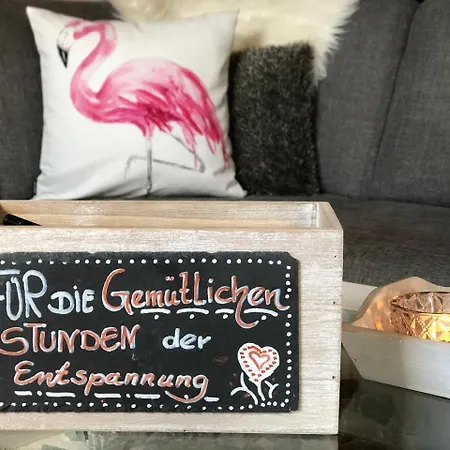 FÜR DiE GemütLichen
STUNDEN der
Entspannung